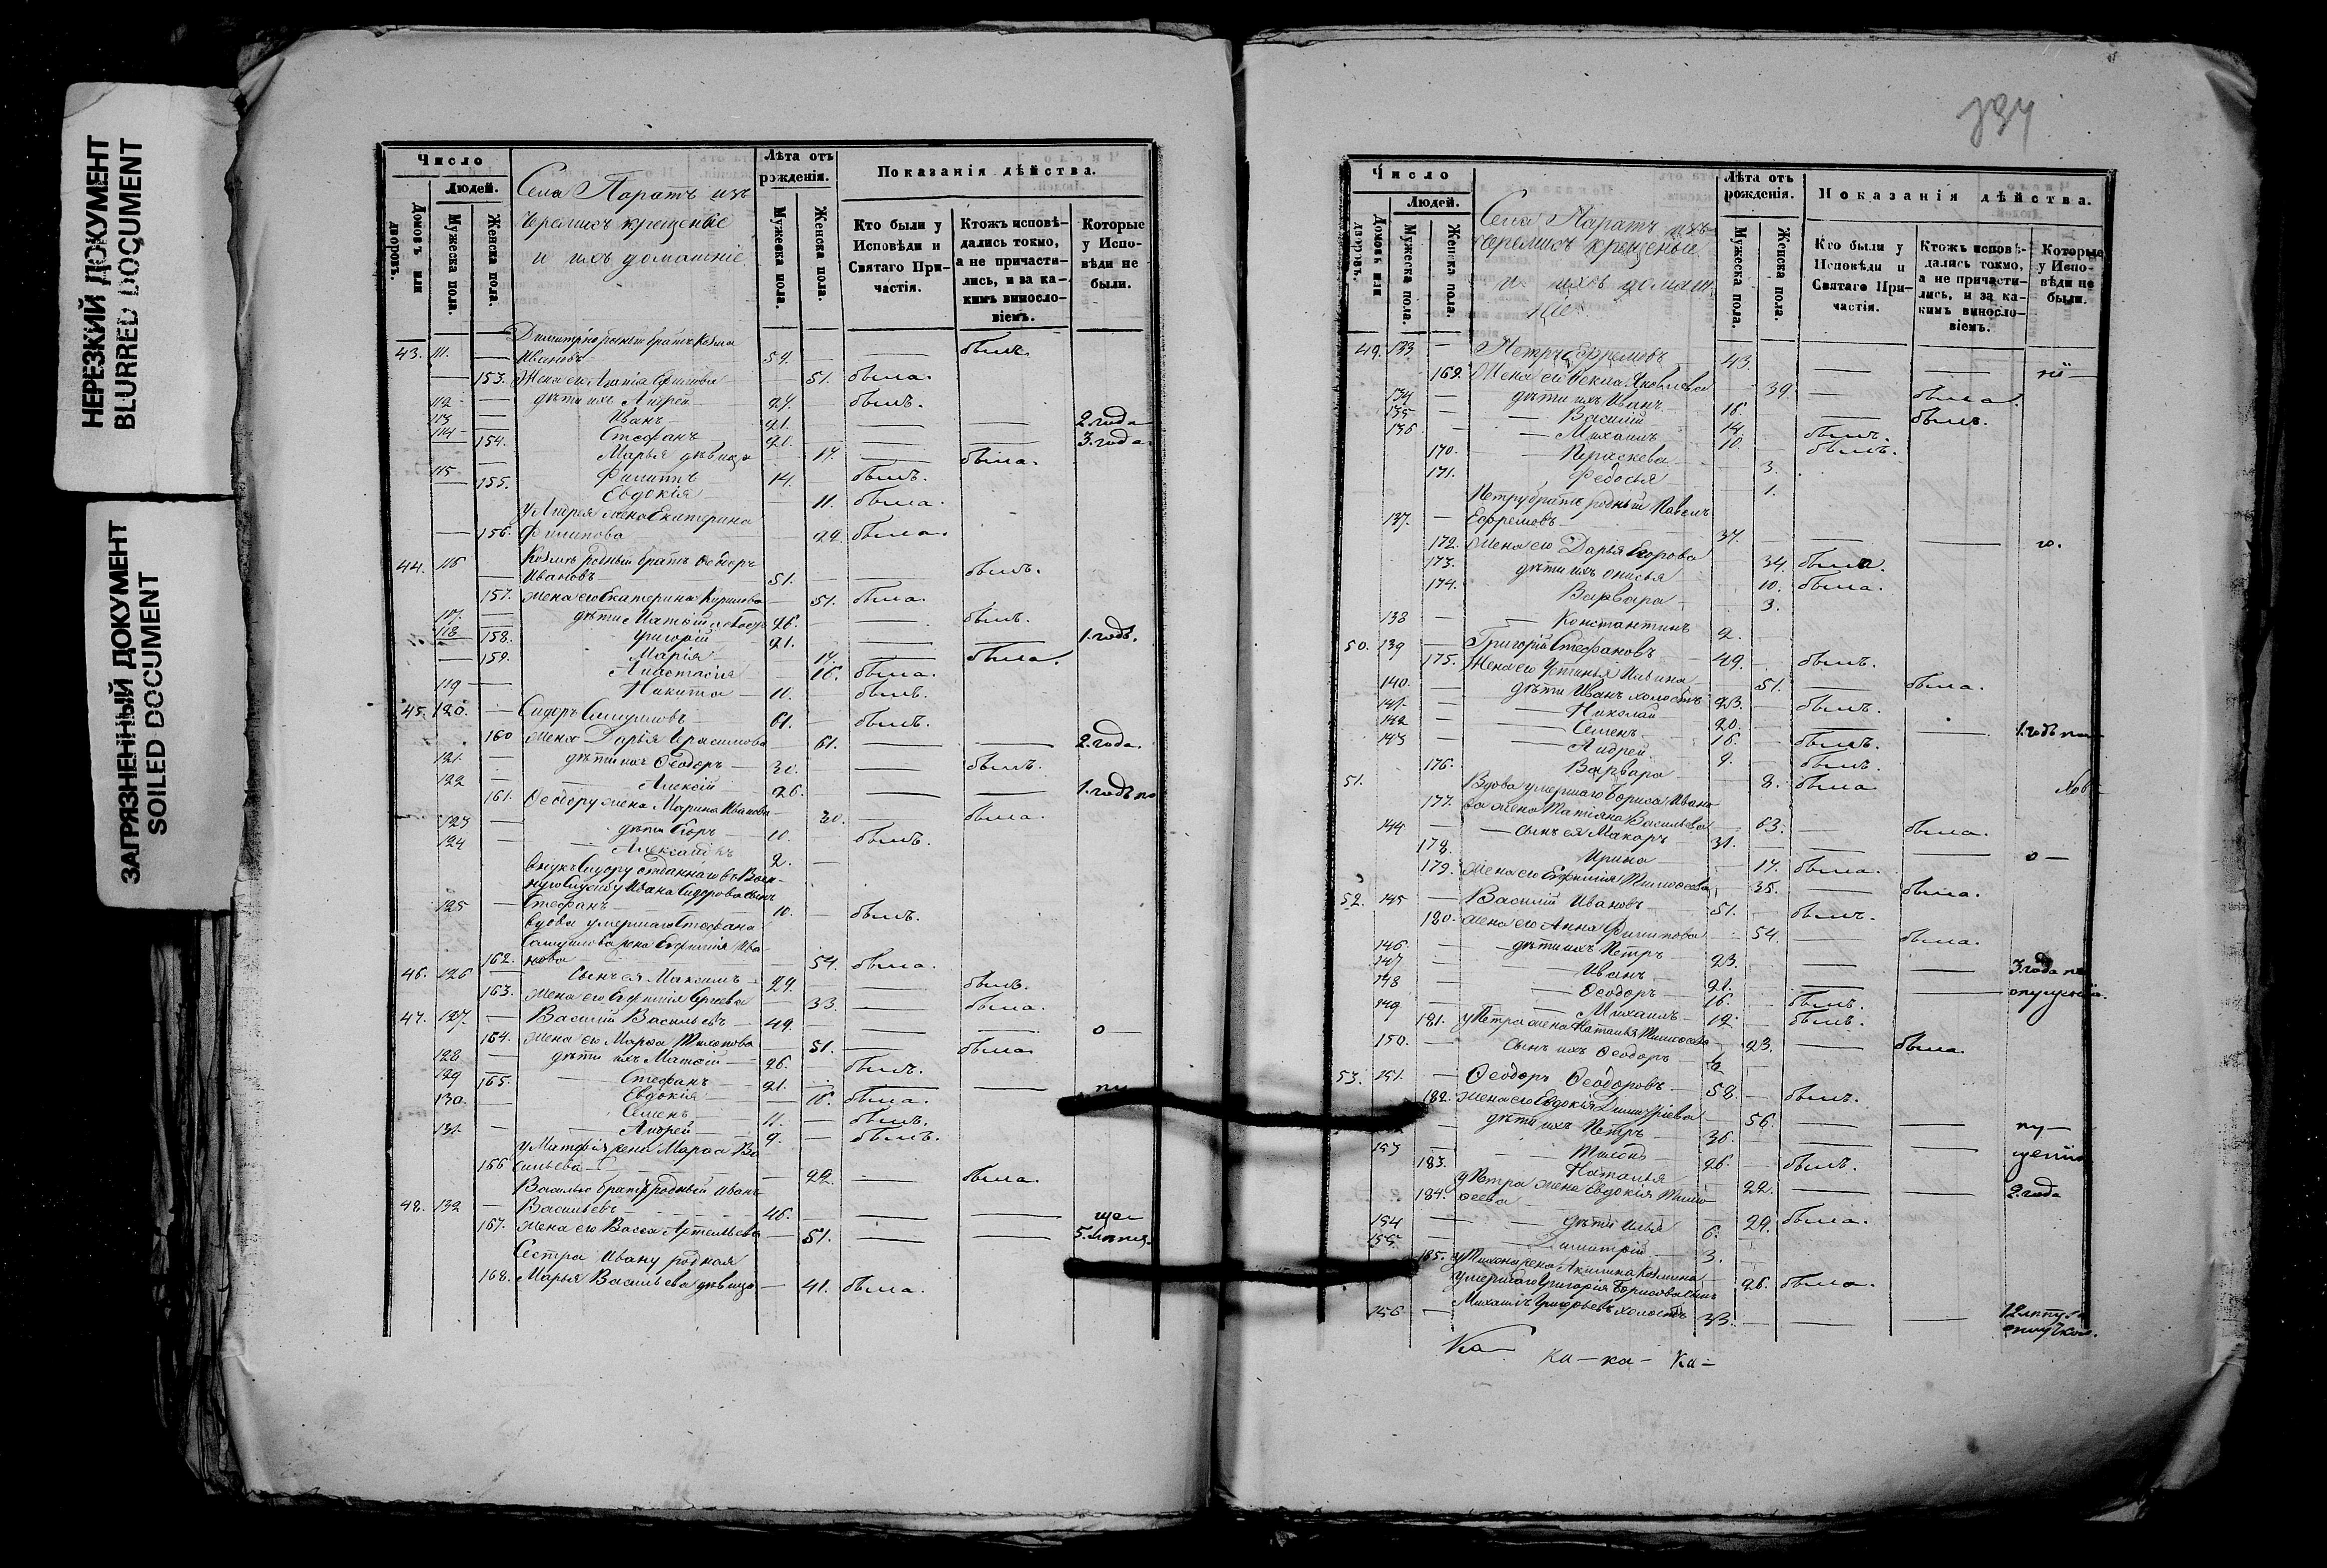 НЕРЕЗКИЙ ДОКУМЕНТ
BLURRED DOCUMENT
ЗАГРЯЗНЕННЫЙ ДОКУМЕНТ
SOILED DOCUMENT
Число
Людей.
Домовъ или дворовъ.
Мужеска пола.
Женска пола.
Села Паратъ изъ
Черемисъ крещеные
и ихъ домашніе
Лѣта отъ рожденія.
Мужеска пола.
Женска пола.
Показанія дѣйства.
Кто были у Исповѣди и Святаго При-частія.
Ктожъ исповѣ-дались токмо, а не причасти-лись, и за ка-кимъ винословіемъ.
Которые у Испо-вѣди не были.
Димитрію родный братъ Козма
43. 111. — Ивановъ 54. — — былъ.
— 153. Жена его Агапія — 51. была.
112 — дѣти ихъ Андрей 24. — былъ.
113 — Иванъ 21. — — 2. года
114 — Стефанъ — — 3. года.
154. Марья дѣвица 17. — была.
115 — Филиппъ 14. былъ.
155. Евдокія 11. была.
у Андрея жена Екатерина
— 156. Филипова — 22. была.
Козмѣ родный братъ Ѳеодоръ
44. 116 — Ивановъ 51. — — былъ.
157. жена его Екатерина Кирилова — 51. была.
117. — дѣти Матѳій 26. — — былъ.
118 — Григорій 21. — — 1. годъ.
158. Марія — 17. — была.
159. Анастасія — 16. была.
119 — Никита — 11. — былъ.
45. 120. — Сидоръ Самуиловъ 61. — былъ.
160 жена Дарья Герасимова — 61. — — 2. года.
121. — дѣти ихъ Ѳеодоръ — 30. — — былъ.
122 — Алексій — 26. — — 1. годъ
161. Ѳеодору жена Марина Иванова — 30. — была.
123 — дѣти Егоръ — 10. — былъ.
124 — Александръ 2. —
Внукъ Сидору отданнаго въ Воен-
ную Службу Ивана Сидорова сынъ
125 — Стефанъ — 10. — былъ.
вдова умершаго Стефана
Самуилова жена Евфимія Ива-
162. нова — 54. была.
46. 126 — Сынъ ея Максимъ — 29. — — былъ.
163. жена его Евфимія — 33. — была.
47. 127. — Василій Васильевъ — 49. — — о —
164. жена его Марѳа — 51. — была
128 — дѣти ихъ Матѳій — 26. — былъ.
129 — Стефанъ — 21. — —
165. Евдокія — 16. была.
130. — Семенъ — 11. — былъ.
131. — Андрей — 9. — былъ.
у Матѳія жена Марѳа Ва
166 сильева — 22. — была.
Василью братъ родный Иванъ
48. 132 — Васильевъ 46. — —
167. жена его Васса — 51. — —
Сестра Ивану родная
168. Марья Васильева дѣвица — 41. была.
Число
Людей.
Домовъ или дворовъ.
Мужеска пола.
Женска пола.
Села Паратъ изъ
Черемисъ крещеные
и ихъ домаш
ніе
Лѣта отъ рожденія.
Мужеска пола.
Женска пола.
Показанія дѣйства.
Кто были у Исповѣди и Святаго При-частія.
Ктожъ исповѣ-дались токмо, а не причасти-лись, и за ка-кимъ винословіемъ.
Которые у Испо-вѣди не были.
49. 133 — Петръ Ефремовъ 43. — —
169. Жена его Ѳекла Яковлева 39. — была.
134 — дѣти ихъ Иванъ 16. — былъ.
135 — Василій 14. былъ.
136 — Михаилъ 10. былъ.
170. — Праскева 3.
171. Ѳедосья 1.
Петру братъ родный Павелъ
137. — Ефремовъ 37. — —
172. Жена его Дарья Егорова 34 была.
173. дѣти ихъ Анисья 10. была.
174. Варвара — 3.
138 — — Константинъ 2.
50. 139 — Григорій Стефановъ 49. — былъ.
175. Жена его Устинья 51. — была.
140. — дѣти Иванъ холостъ 23. — былъ.
141. — Николай 20. — 1. годъ
142 — Семенъ 16. — былъ.
143 — Андрей 9. — былъ.
176. Варвара 8. была
51. Вдова умершаго Бориса Ивано
177. ва жена Татіана Васильева — 63. — была.
144 — сынъ ея Макаръ 31. — — о —
178. Ирина — 17. была.
179. жена его Евфимія Тимоѳеева 35. — была.
52. 145 — Василій Ивановъ 51. — былъ.
180. жена его Анна Филипова 54. — была.
146 — дѣти ихъ Петръ 23. — — 3. года
147 — Иванъ 21. — —
148 — Ѳеодоръ — 16. — былъ.
149 — Михаилъ 12. — былъ.
181. у Петра жена Наталья Тимоѳеева 23. — была.
150. — сынъ ихъ Ѳеодоръ
53. 151. — Ѳеодоръ Ѳеодоровъ — 58. — былъ.
182. жена его Евдокія Димитріева 56. — —
— дѣти ихъ Петръ — 36. — —
153 — Тихонъ 26. — былъ.
183. Наталья — 22. — — 2. года
у Петра жена Евдокія Тимо
184. ѳеева — 29. была.
154 — дѣти Илья 6.
155. — Димитрій — 3.
185. у Тихона жена Акилина Козмина 26. была.
умершаго Григорія Борисова сынъ
156 — Михаилъ Григорьевъ холостъ 33. — —
Ка
ка — ка — ка —